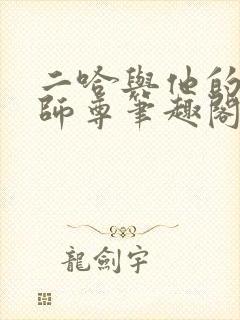 二哈與他的
師尊筆趣閣
龍劍宇